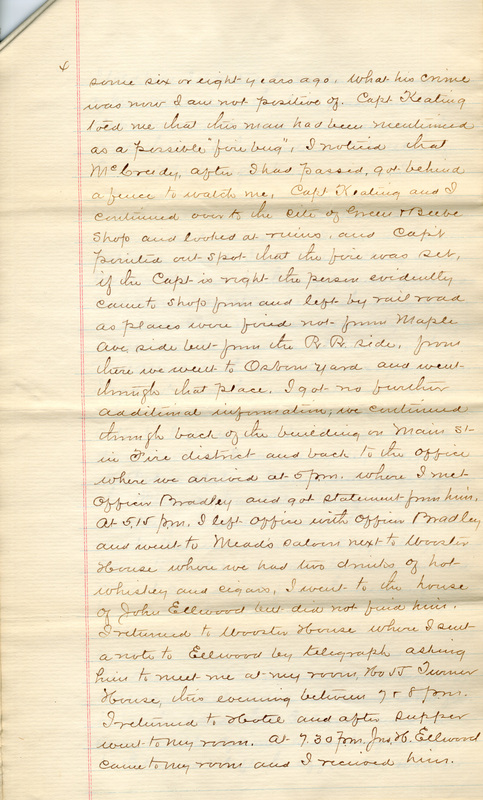 4
some six or eight years ago, what his crime
was now I am not positive of. Capt Keating
told me that this man had been mentioned
as a possible "fire bug", I noticed that
McCreedy, after I had passed, got behind
a fence to watch me, Capt Keating and I
continued over to the site of Green & Beebe
Shop and looked at ruins, and Capt
pointed out spot that the fire was set,
if the Capt is right the person evidently
came to shop from and left by rail road
as places were fired not from Maple
Ave, side but from the R. R. side, from
there we went to Osborn yard and went
through that place. I got no further
additional information, we continued
through back of the building on Main St
in Fire district and back to the office
where we arrived at 5 pm. where I met
Officer Bradley and got statement from him.
At 5,15 pm. I left office with Officer Bradley
and went to Meads saloon next to Wooster
House where we had two drinks of hot
whiskey and cigars, I went to the house
of John Ellwood but did not find him.
I returned to Wooster House where I sent
a note to Ellwood by telegraph asking
him to meet me at my room, No 55 Turner
House, this evening between 7 & 8 pm.
I returned to Hotel and after supper
went to my room. At 7.30 pm, Jno, H. Ellwood
came to my room and I received him.